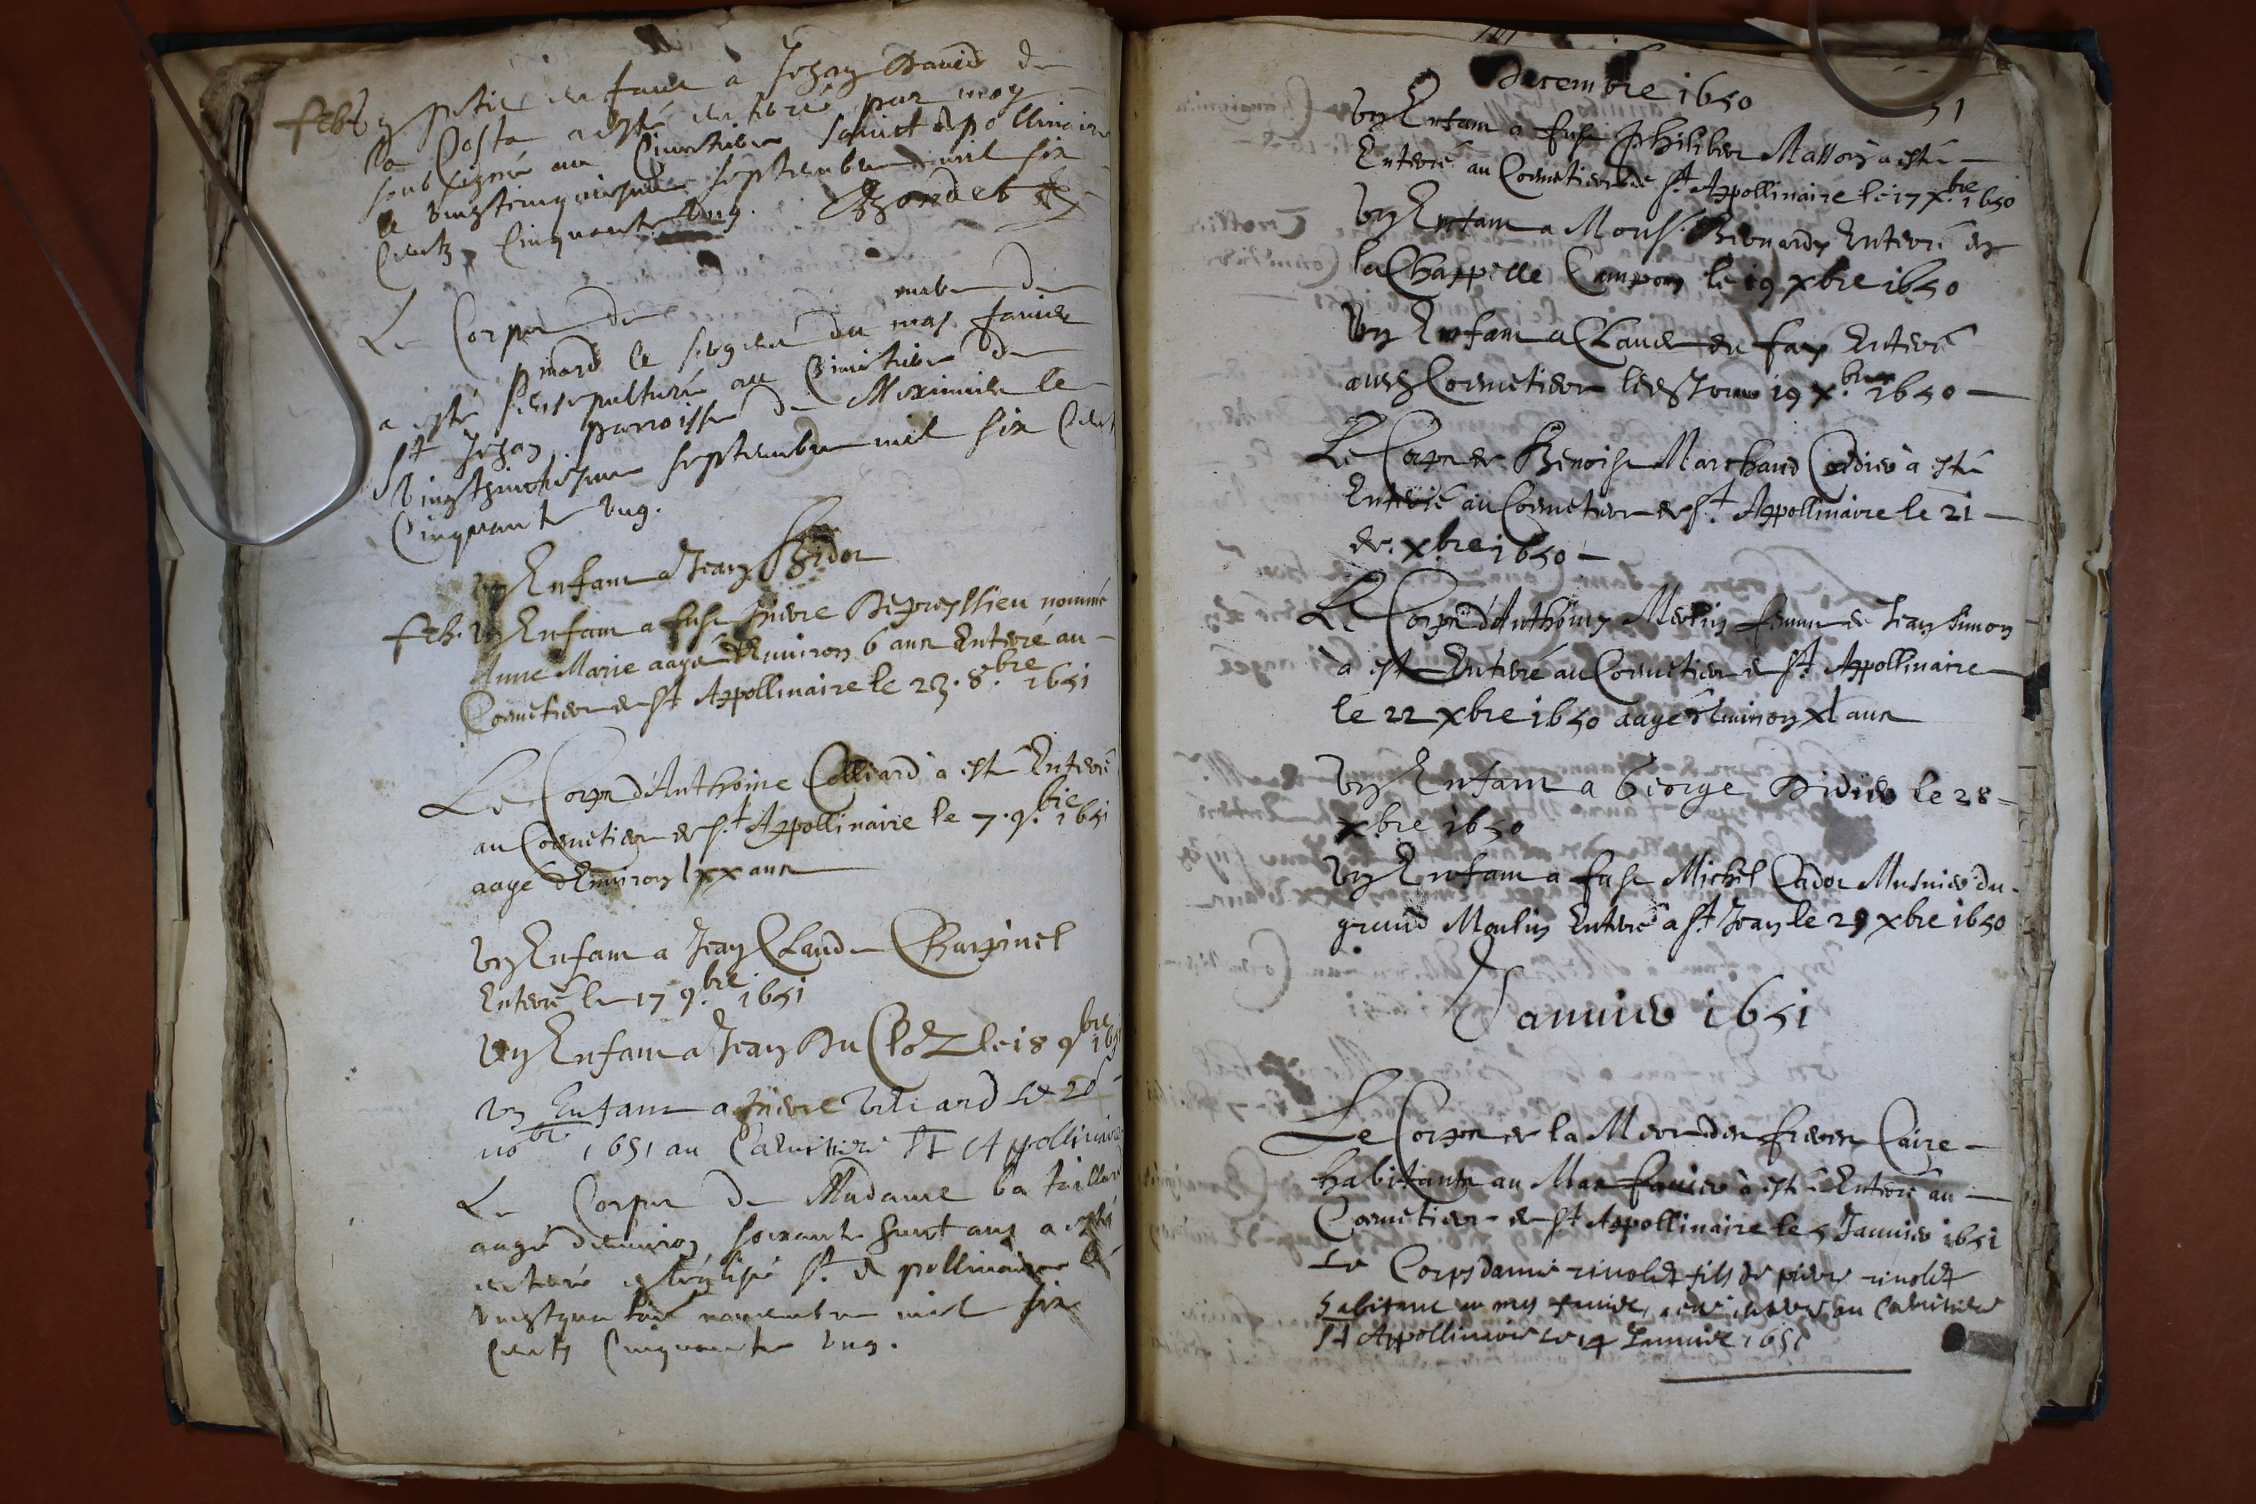 Un petit enfant a Jehan David de
la Coste a esté enterré par moy
soub signé au Cimetiere sainct Apollinaire
le vingtcinquiesme septembre mil six
Centz Cinquante ung.
Le Corps de
pinard le segond du mas fanier
a esté ensepulturé au Cimetiere de
St Jehan parroisse de Meximieu le
septembre mil six Cent
Cinquante ung.
Un Enfant a Jean Bidot
Un Enfant a fust Pierre nommé
Anne Marie aagé d'Environ 6 ans Enterré au
Coemetiere de St Appollinaire le 23. 8.bre 1651
Le Corps d'Anthoine Colliard a esté Enterré
au Coemetiere de St Appollinaire le 7. 9.bre 1651
aagé d'Environ lxx ans
Un Enfant a Jean Claude Charpinel
Enterré le 17 9.bre 1651
Un Enfant a Jean Du Cloz le 18 9bre 1651
Un Enfant a Pierre Villiard le
nobr 1651 au Cœmitiere St Appollinaire
Le Corps de Madame la
aagé d'environ soixante huict ans a esté
enterré en l'eglise St Apollinaire le
vingtquatriè novembre mil six
Centz Cinquante ung.
decembre 1650
51
Un Enfant a fust Philiber Matton a esté
Enterré au Coemetiere de St Appollinaire le 17 x.bre 1650
Un Enfant a Mons.r Bernardy Enterré en
la Chappelle Campon le 19 xbre 1650
Un Enfant a Claude du fay Enterré
au Coemetiere 19 x.bre 1650
Le Corps de Benoist Marchand Cordier a esté
Enterré au Coemetiere de St Appollinaire le 21
de xbre 1650
Le Corps d'Anthoiny Merlin femme de Jean Simon
a esté Enterré au Coemetiere de St Appollinaire
le 22 xbre 1650 aagé d'Environ xl ans
Un Enfant a George Didier le 28
xbre 1650
Un Enfant a fust Michel Cador Musnier du
grand Moulin Enterré a St Jean le 29 xbre 1650
Janvier 1651
Le Corps de la Mere des freres Caire
habitants au Mas fanier a esté Enterré au
Coemetiere de St Appollinaire le 5 Janvier 1651
Le Corps danne rivolet fille de pierre rivolet
habitant au mas fanier, a esté enterré au Cœmitiere
St Appollinaire le 14 Janvier 1651